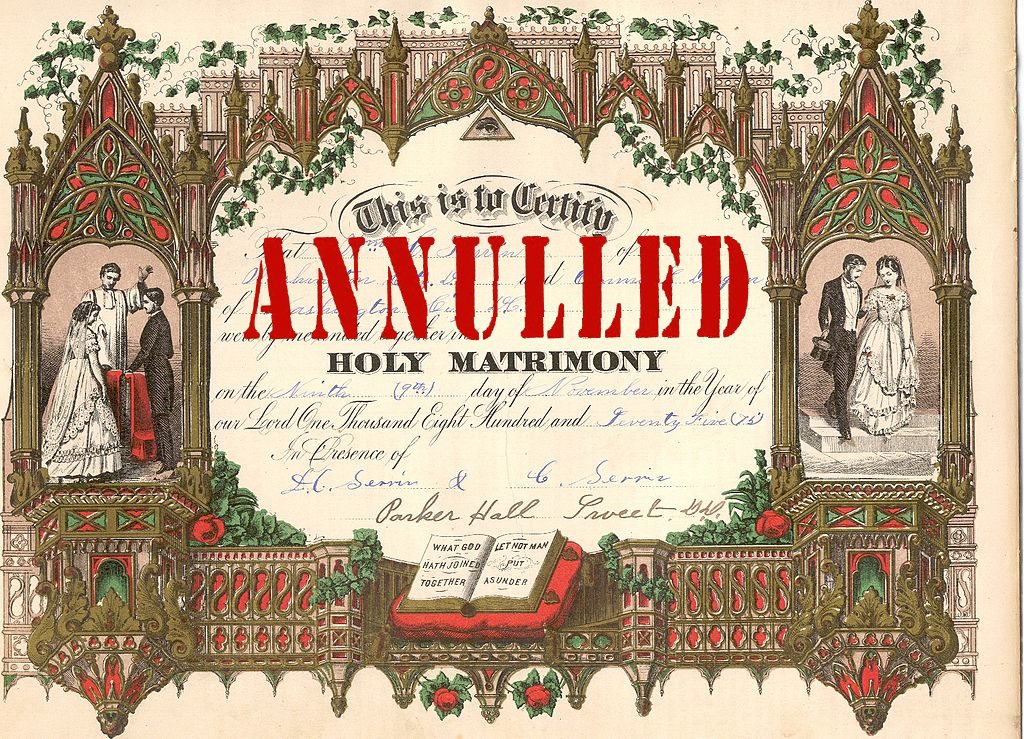 This is to Certify
That of
ANNULLED
and
of Washington
were by me united together in
HOLY MATRIMONY
on the Ninth (9th) day of November in the Year of
our Lord One Thousand Eight Hundred and Seventy Five (75)
In Presence of
& C.
Parker Hall Sweet
WHAT GOD
HATH JOINED
TOGETHER
LET NOT MAN
PUT
ASUNDER